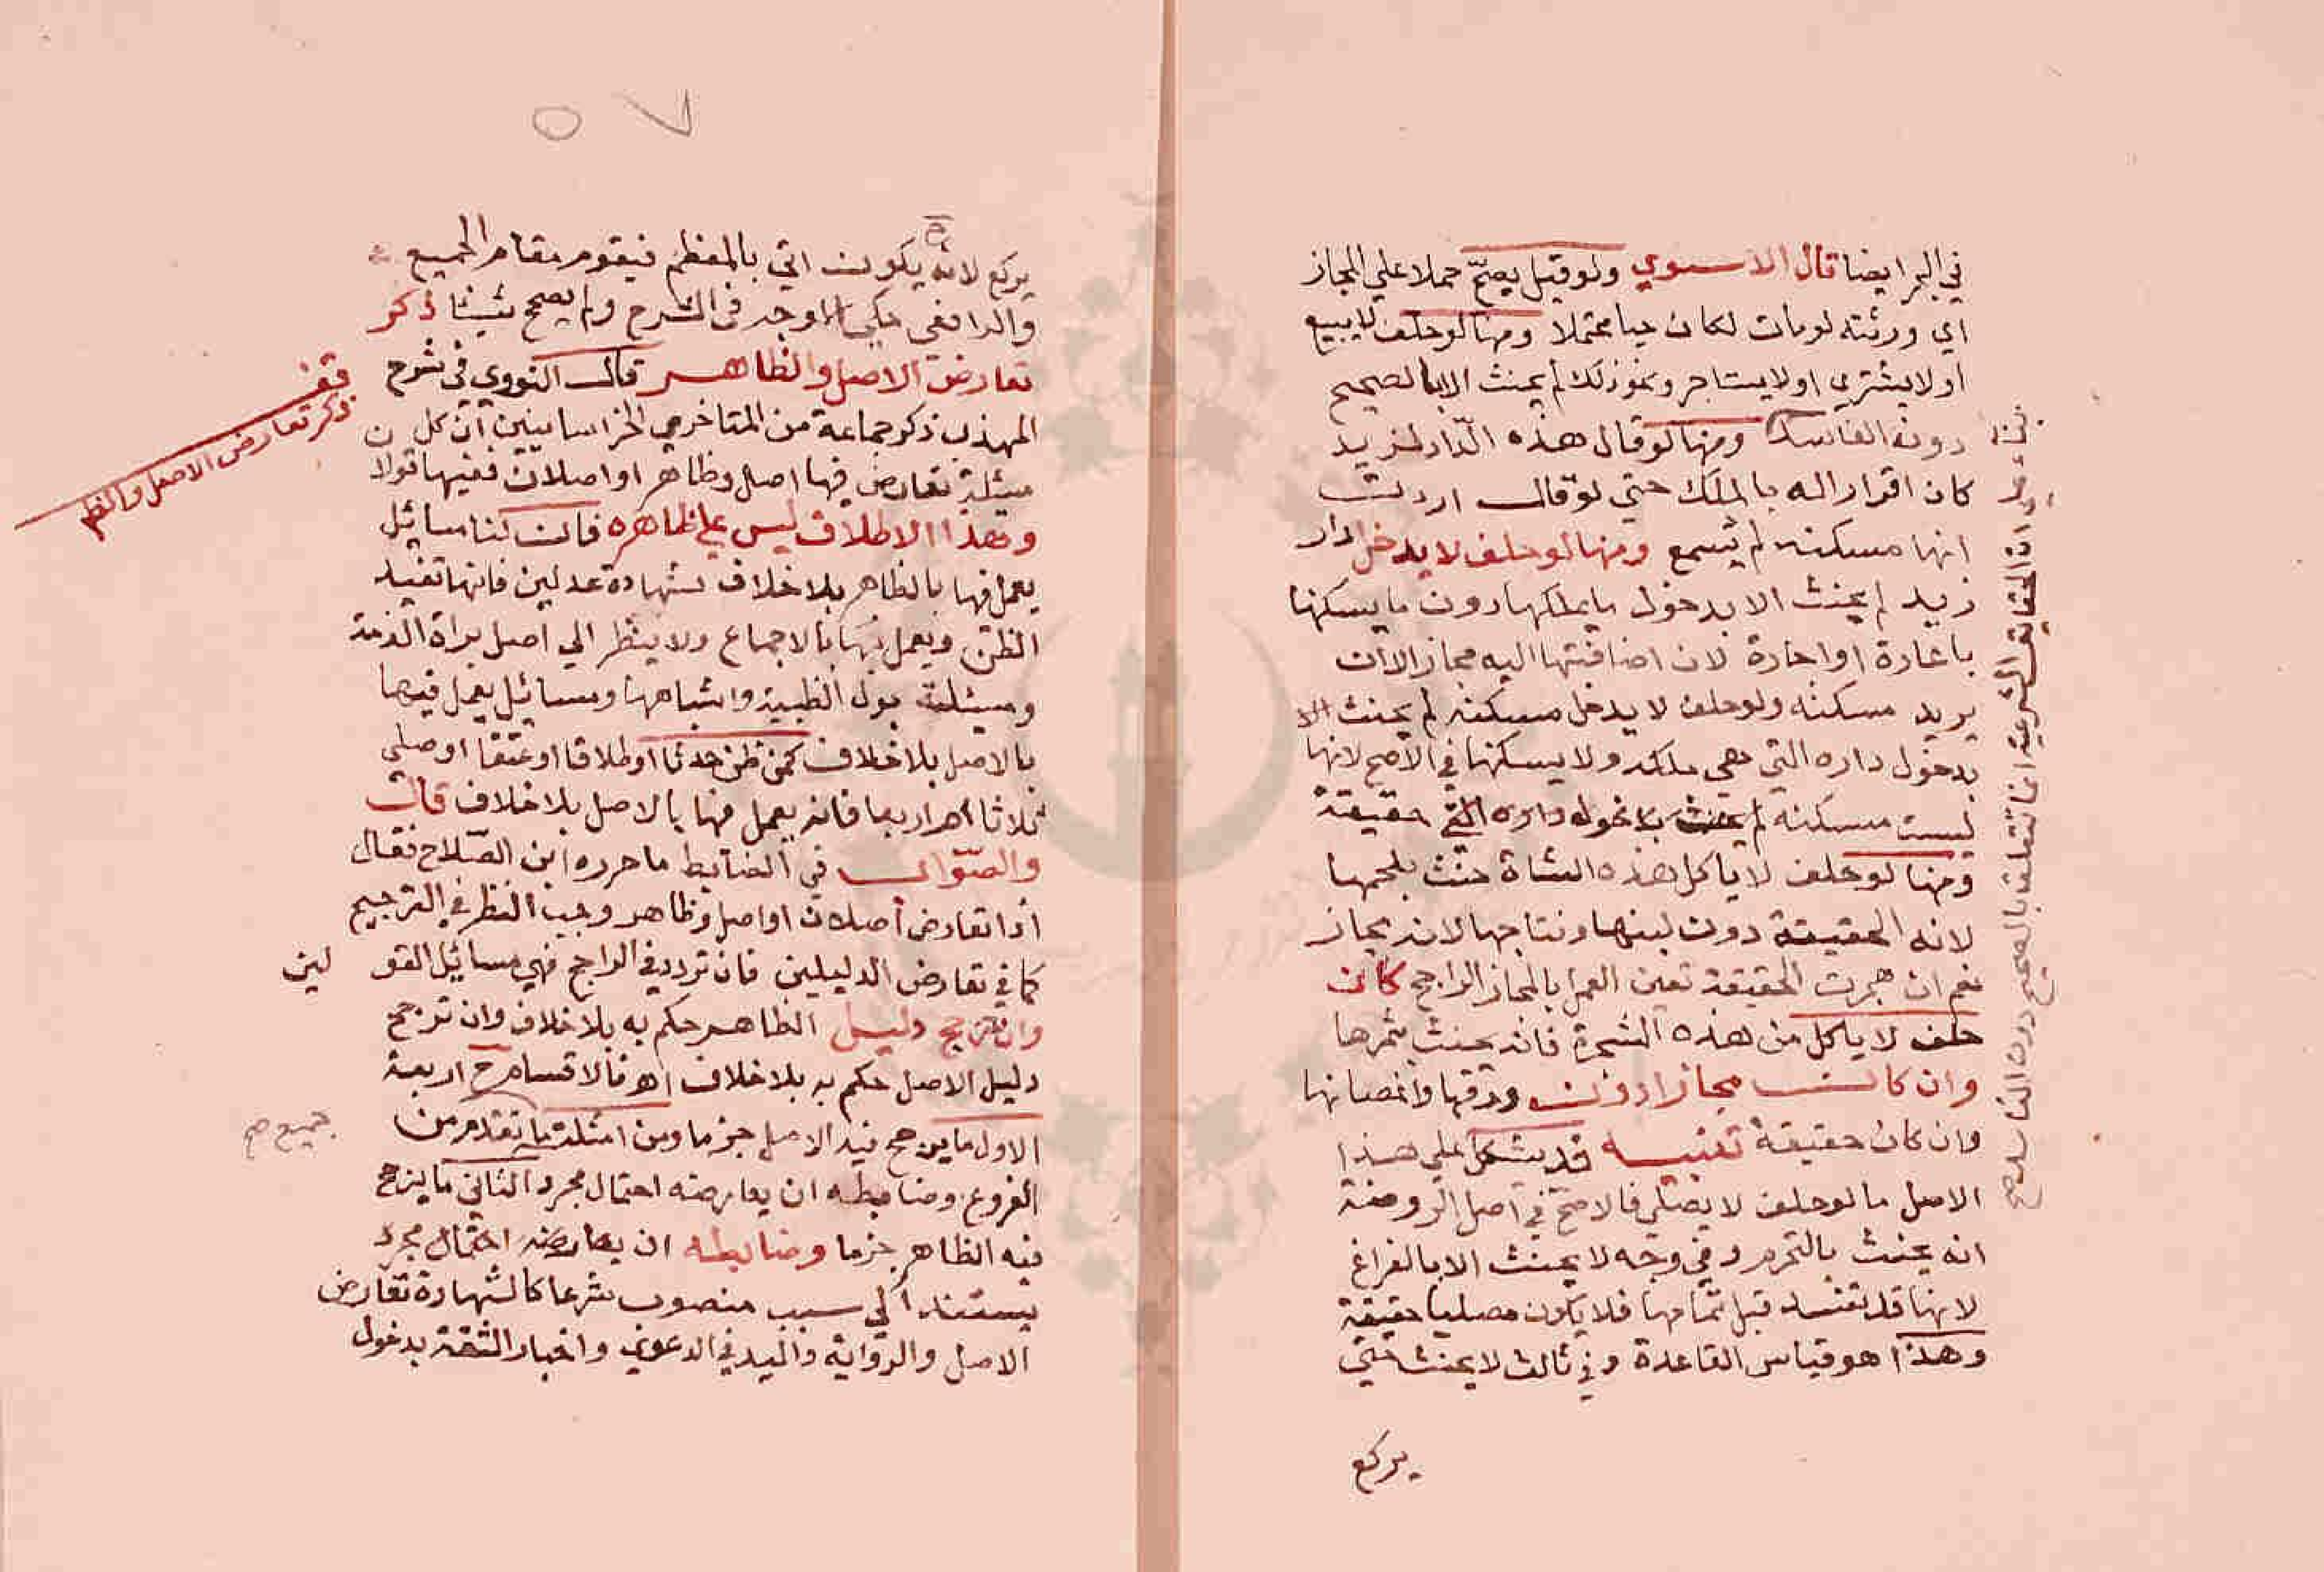 في البر ايضا قال الاسنوي ولو قيل يصح حملا علي المجاز
اي ورثته لو مات لكان حيا محتملا ومنها لو حلف لا يبيع
او لا يشتري او لا يستاجر ونحو ذلك لم يحنث الا بالصحيح
دون الفاسد ومنها لو قال هذه الدار لزيد
كان اقرارا له بالملك حتي لو قال اردت
انها مسكنه لم يسمع ومنها لو حلف لا يدخل دار
زيد لم يحنث الا بدخول ما يملكها دون ما يسكنها
باعارة او اجارة لان اضافتها اليه مجاز الا ان
يريد مسكنه ولو حلف لا يدخل مسكنه لم يحنث الا
بدخول داره التي هي ملكه ولا يسكنها في الاصح لانها
ليست مسكنه لم يحنث بدخوله داره التي حقيقة
ومنها لو حلف لا ياكل هذه الشاة حنث بلحمها
لانه الحقيقة دون لبنها ونتاجها لانه مجاز
نعم ان هجرت الحقيقة تعين العمل بالمجاز الراجح كان
حلف لا ياكل من هذه الشجرة فانه يحنث بثمرها
وان كانت مجازا دون ورقها واغصانها
وان كان حقيقة تنبيه قد يشكل علي هذا
الاصل ما لو حلف لا يصلي فالاصح في اصل الروضة
انه يحنث بالتحرم وفي وجه لا يحنث الا بالفراغ
لانها قد تفسد قبل تمامها فلا يكون مصليا حقيقة
وهذا هو قياس القاعدة وفي ثالث لا يحنث حتي
يركع
الحقايق الشرعية انما تتعلق بالصحيح دون الفاسد صح
٥٧
يركع لانه يكون اتي بالمعظم فيقوم مقام الجميع
والرافعي حكي الاوجه في الشرح ولم يصحح شيئا ذكر
تعارض الاصل والظاهر قال النووي في شرح
المهذب ذكر جماعة من المتاخري الخراسانيين ان كل
مسئلة تعارض فيها اصل وظاهر او اصلان ففيها قولان
وهذا الاطلاق ليس علي ظاهره فان لنا مسائل
يعمل فيها بالظاهر بلا خلاف لشهادة عدلين فانها تفيد
الظن ويعمل بها بالاجماع ولا ينظر الي اصل براة الذمة
ومسئلة بول الظبية واشباهها ومسائل يعمل فيها
بالاصل بلا خلاف كمن ظن حدثا او طلاقا او عتقا او صلي
ثلاثا ام اربعا فانه يعمل فيها بالاصل بلا خلاف قال
والصواب في الضابط ما حرره ابن الصلاح فقال
اذا تعارض اصلان او اصل وظاهر وجب النظر في الترجيح
كما في تعارض الدليلين فان تردد في الراجح فهي مسائل القولين
وان ترجح دليل الظاهر حكم به بلا خلاف وان ترجح
دليل الاصل حكم به بلا خلاف اهـ فالاقسام ح اربعة
الاول ما يرجح فيه الاصل جزما ومن امثلته ما تقدم من
الفروع وضابطه ان يعارضه احتمال مجرد الثاني ما يترجح
فيه الظاهر جزما وضابطه ان يعارضه احتمال مجرد
يستند الي سبب منصوب شرعا كالشهادة تعارض
الاصل والرواية واليد في الدعوي واخبار الثقة بدخول
قف
ذكر تعارض الاصل والظ
جميع صح